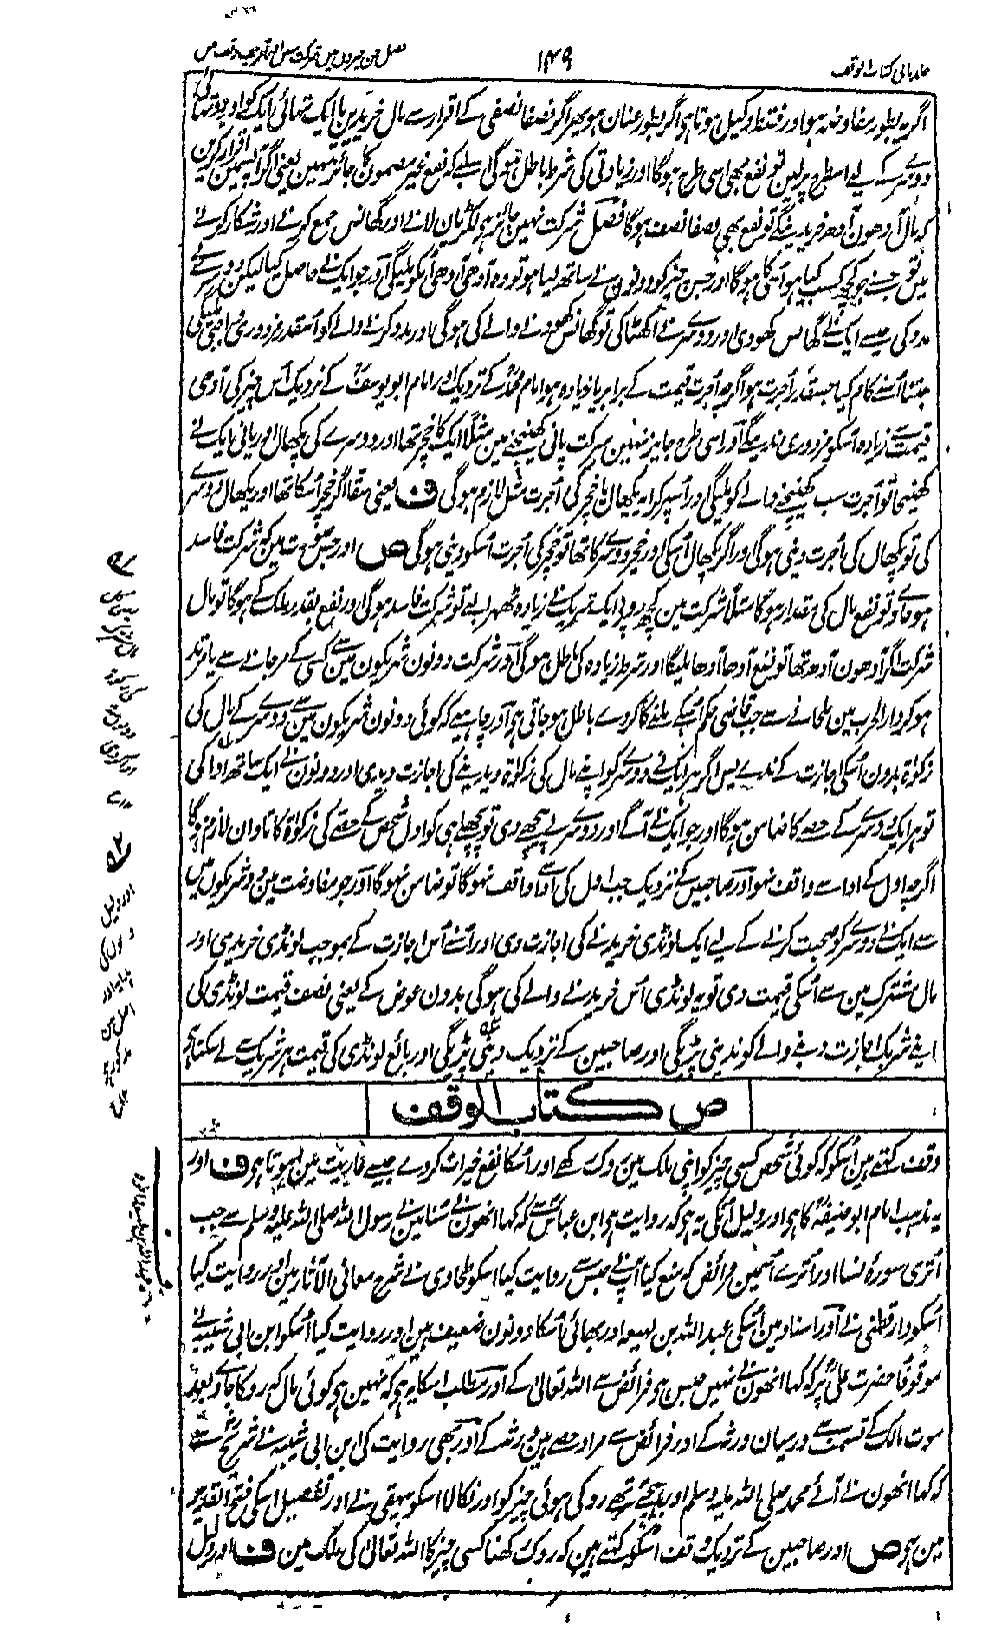 جلد ثانی کتاب الوقف
۱۴۹
فصل جن چیزوں میں شرکت
اگر یہ بطور مفاوضہ ہو اور فقط وکیل ہوتا ہو اگر بطور عنان ہو پھر اگر نصفا نصفی کے اقرار سے مال خریدیں یا ایک تہائی ایک کو اور دو تہائی
دوسرے کے لیے اسطرح پر لین تو نفع بھی اسی طرح ہوگا اور زیادتی کی شرط باطل ہوگی اسلیے کہ نفع غیر مضمون کا جائز نہین یعنی اگر آپسمین اقرار کرین
کہ مال آدھون آدھ خریدینگے تو نفع بھی نصفا نصف ہوگا فصل شرکت نہین جائز ہو لکڑیان لانے اور گھانس جمع کرنے اور شکار کرنے
مین تو جسنے جو کچھ کسب کیا ہو اسکا ہوگا اور جس چیز کو دونون نے ساتھ لیا ہو تو وہ آدھی آدھی انکو ملیگی اور جو ایک نے حاصل کیا لیکن دوسرے نے
مدد کی جیسے ایک نے گھانس کھودی اور دوسرے نے اکھٹا کی تو گھانس کھودنے والے کی ہوگی اور مدد کرنے والے کو اسقدر مزدوری واجبی ملیگی
جتنا اسنے کام کیا جسقدر اجرت ہو اگرچہ اجرت قیمت کے برابر یا زیادہ ہو امام محمدؒ کے نزدیک اور امام ابو یوسفؒ کے نزدیک اس چیز کی آدھی
قیمت سے زیادہ اسکو مزدوری نہ دینگے اور اسی طرح جائز نہین شرکت پانی کھینچنے مین مثلا ایک کا خچر تھا اور دوسرے کی پکھال اور پانی ایک نے
کھینچا تو اجرت سب کھینچنے والے کو ملیگی اور اسپر کرایہ پکھال یا خچر کی اجرت مثل لازم ہوگی ف یعنی سقا اگر خچر اسکا تھا اور پکھال دوسرے
کی تو پکھال کی اجرت دینی ہوگی اور اگر پکھال اسکی اور خچر دوسرے کا تھا تو خچر کی اجرت اسکو دینی ہوگی ص اور جس صورت مین کہ شرکت فاسد
ہووے تو نفع مال کی مقدار ہوگا مثلا شرکت مین کچھ روپیہ ایک شریک نے زیادہ ٹھہرا لیے تو شرکت فاسد ہوگی اور نفع بقدر ملک کے ہوگا تو مال
شرکت اگر آدھون آدھ تھا تو نفع آدھا آدھا ملیگا اور شرط زیادہ کی باطل ہوگی اور شرکت دونون شریکون مین سے کسی کے مرجانے سے یا مرتد
ہوکر دار الحرب مین ملجانے سے جب قاضی حکم اسکے ملنے کا کردے باطل ہو جاتی ہی اور چاہیے کہ کوئی دونون شریکون مین سے دوسرے کے مال کی
زکواۃ بدون اسکی اجازت کے ندے پس اگر ہر ایک نے دوسرے کو اپنے مال کی زکواۃ دینے کی اجازت دیدی اور دونون نے ایک ساتھ ادا کی
تو ہر ایک دوسرے کے حصے کا ضامن ہوگا اور جو ایک نے آگے اور دوسرے نے پیچھے دی تو پچھلے ہی کو اول شخص کے حصے کی زکواۃ کا تاوان لازم ہوگا
اگرچہ اول کے ادا سے واقف نہو اور صاحبین کے نزدیک جب اول کی ادا سے واقف نہوگا تو ضامن نہوگا اور جو مفاوضت مین دو شریکوں میں
سے ایک نے دوسرے کو صحبت کرنے کے لیے ایک لونڈی خریدنے کی اجازت دی اور اسنے اس اجازت کے بموجب لونڈی خریدی اور
مال مشترک مین سے اسکی قیمت دی تو یہ لونڈی اس خریدنے والے کی ہوگی بدون عوض کے یعنی نصف قیمت لونڈی کی
اپنے شریک اجازت دینے والے کو ندینی پڑیگی اور صاحبین کے نزدیک دینی پڑیگی اور بائع لونڈی کی قیمت ہر شریک سے لے سکتا ہی
ص کتاب الوقف
وقف کہتے ہین اسکو کہ کوئی شخص کسی چیز کو اپنی ملک مین روک رکھے اور اسکا نفع خیرات کردے جیسے عاریت مین ہوتا ہو ف اور
یہ مذہب امام ابو حنیفہؒ کا ہو اور دلیل انکی یہ ہو کہ روایت ہو ابن عباسؓ سے کہ کہا انھون نے سنا مین نے رسول اللہ صلی اللہ علیہ وسلم سے جب
اتری سورۂ نسا اور اترے اسمین فرائض کہ منع کیا آپ نے حبس سے روایت کیا اسکو طحاوی نے شرح معانی الآثار مین اور روایت کیا
اسکو دارقطنی نے اور اسناد مین اسکی عبد اللہ بن لہیعہ اور بھائی اسکا دونون ضعیف ہین اور روایت کیا اسکو ابن ابی شیبہ نے
موقوفا حضرت علیؓ پر کہ کہا انھون نے نہین حبس ہو فرائض سے اللہ تعالی کے اور مطلب اسکا یہ ہو کہ نہین ہو کوئی مال کہ روکا جاوے بعد
موت مالک کے قسمت سے درمیان ورثہ کے اور فرائض سے مراد حصے ہین ورثہ کے اور بھی روایت کی ابن ابی شیبہ نے شریح سے
کہ کہا انھون نے آئے محمد صلی اللہ علیہ وسلم اور بیچتے تھے روکی ہوئی چیز کو اور نکالا اسکو بیہقی نے اور تفصیل اسکی فتح القدیر
مین ہو ص اور صاحبین کے نزدیک وقف اسکو کہتے ہین کہ روک رکھنا کسی چیز کا اللہ تعالی کی ملک مین ف اور دلیل